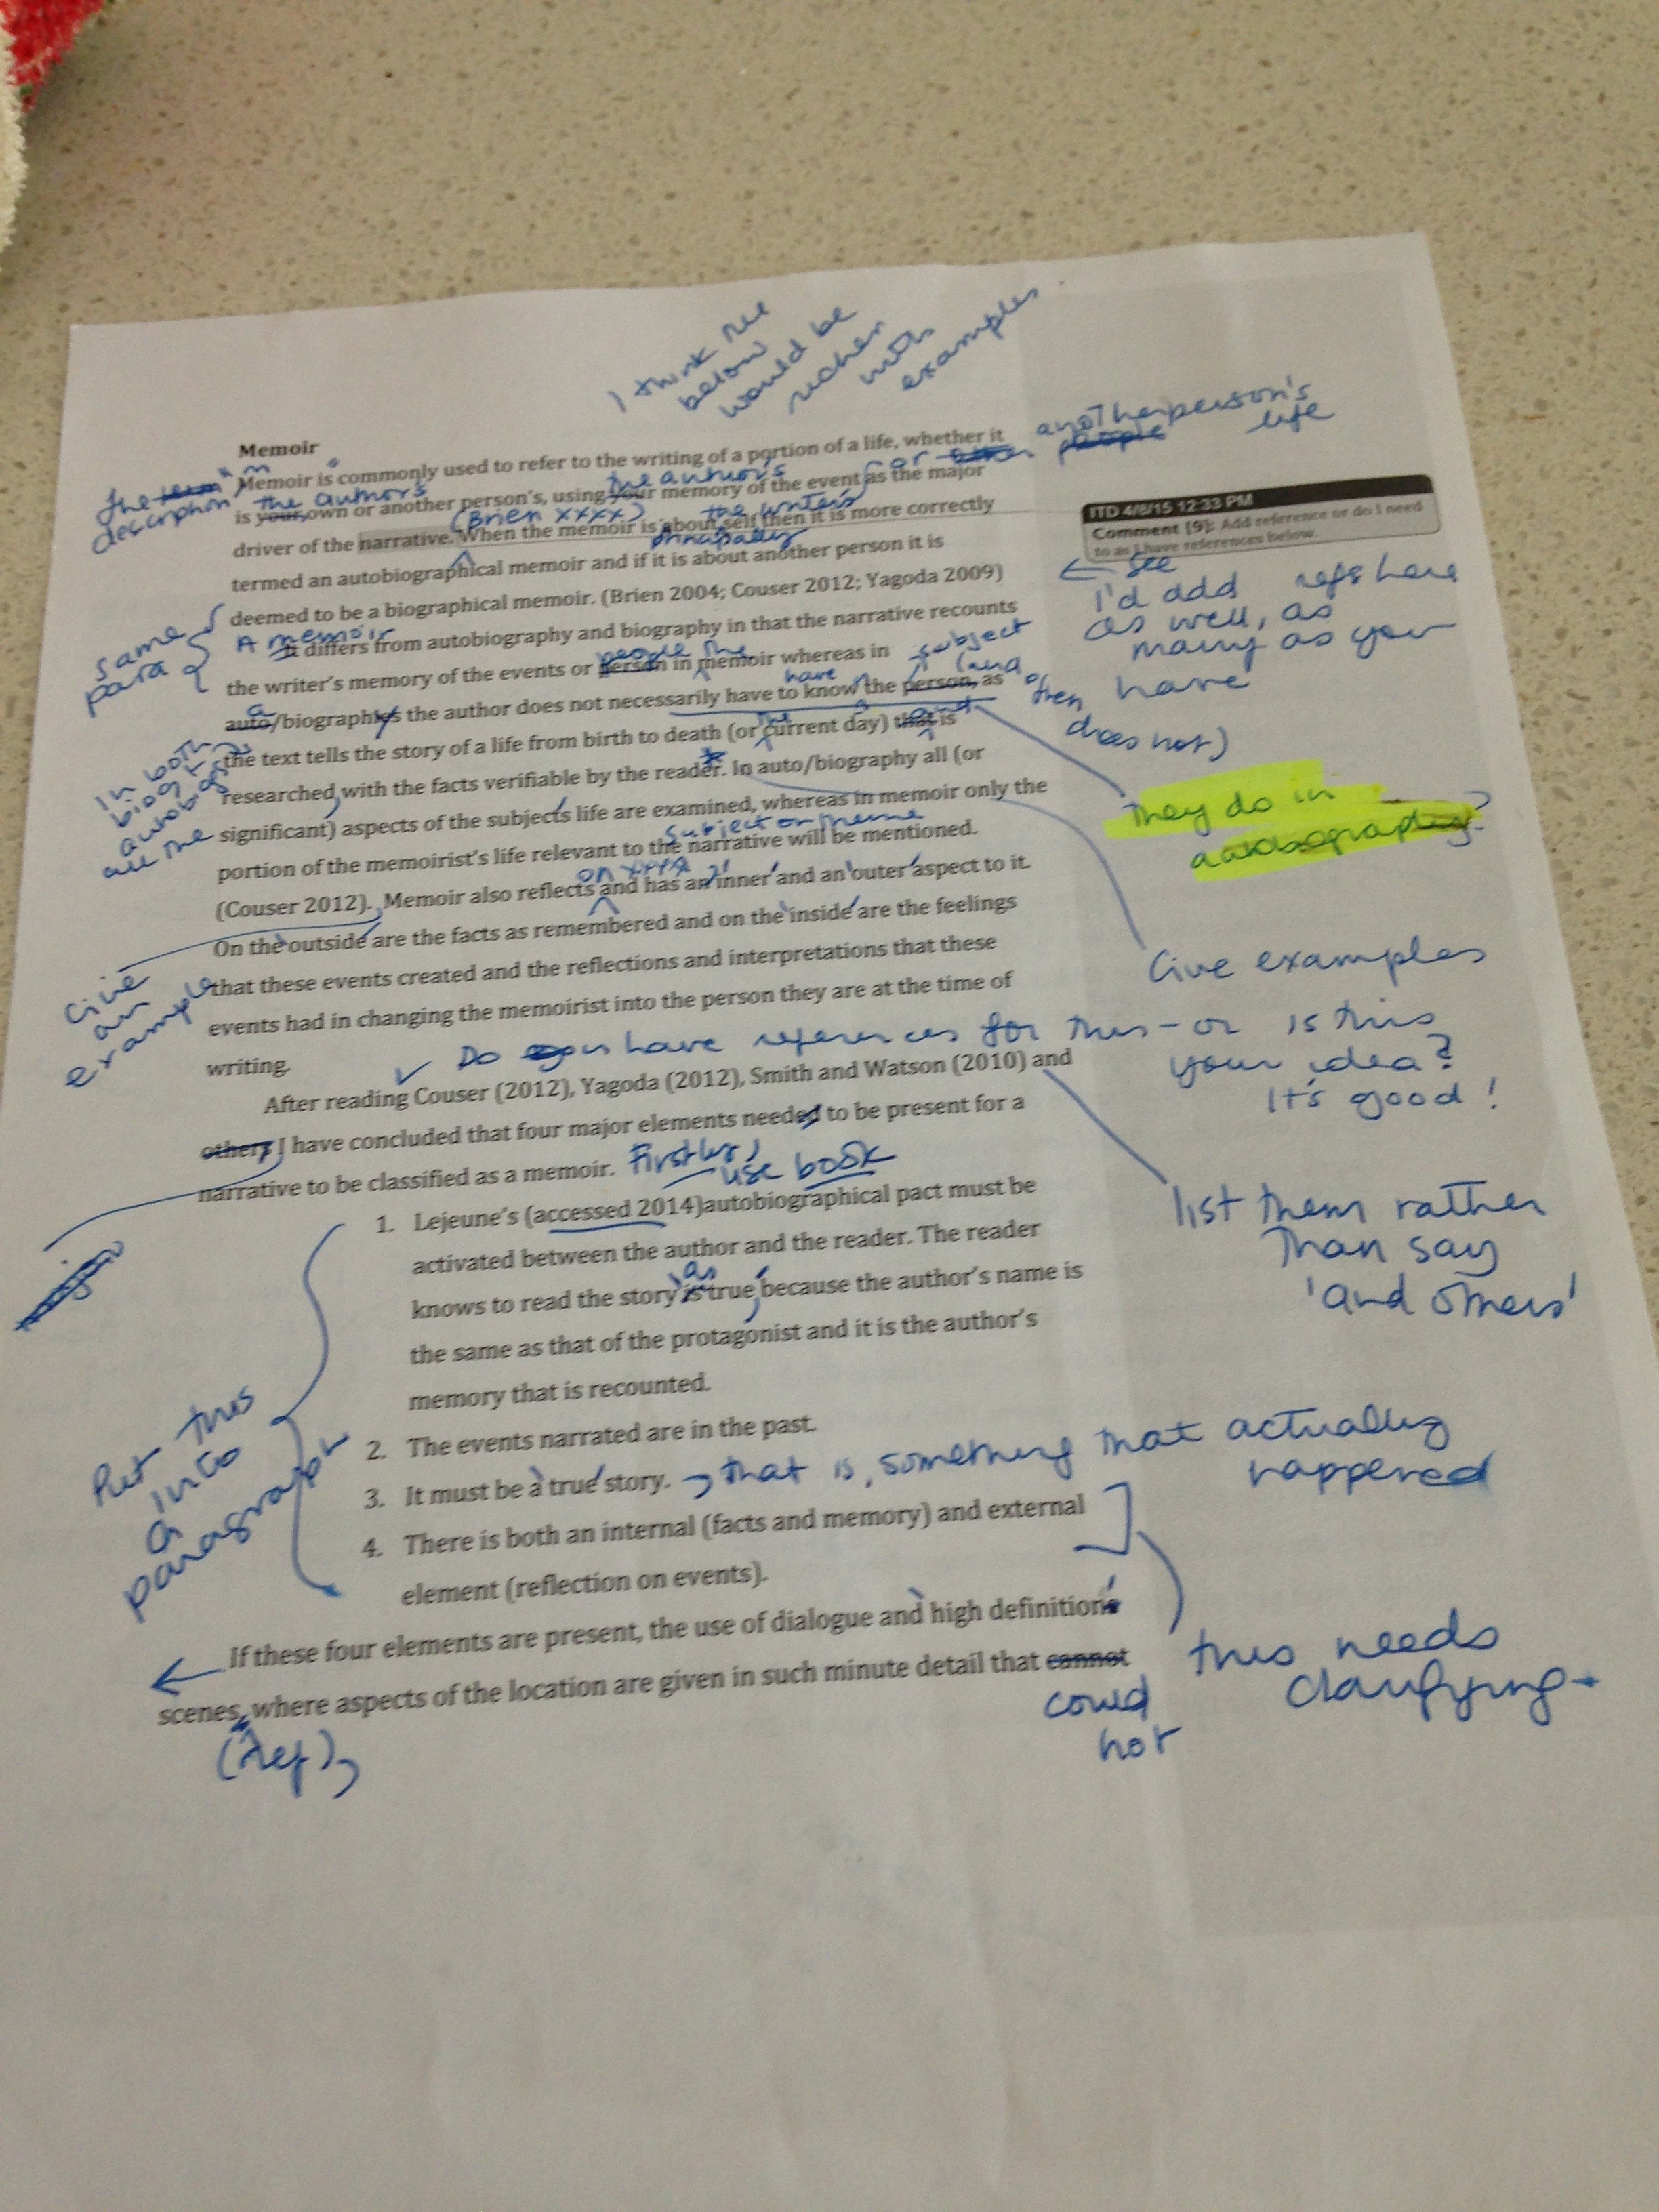 I think the
below
would be
richer
with
examples
Memoir
Memoir is commonly used to refer to the writing of a portion of a life, whether it
is your own or another person's, using your memory of the event as the major
driver of the narrative. When the memoir is about self then it is more correctly
termed an autobiographical memoir and if it is about another person it is
deemed to be a biographical memoir. (Brien 2004; Couser 2012; Yagoda 2009)
It differs from autobiography and biography in that the narrative recounts
the writer's memory of the events or person in memoir whereas in
auto/biographies the author does not necessarily have to know the person, as
the text tells the story of a life from birth to death (or current day) that is
researched with the facts verifiable by the reader. In auto/biography all (or
significant) aspects of the subjects life are examined, whereas in memoir only the
portion of the memoirist's life relevant to the narrative will be mentioned.
(Couser 2012). Memoir also reflects and has an inner and an outer aspect to it.
On the outside are the facts as remembered and on the inside are the feelings
that these events created and the reflections and interpretations that these
events had in changing the memoirist into the person they are at the time of
writing.
After reading Couser (2012), Yagoda (2012), Smith and Watson (2010) and
others I have concluded that four major elements needed to be present for a
narrative to be classified as a memoir.
1. Lejeune's (accessed 2014)autobiographical pact must be
activated between the author and the reader. The reader
knows to read the story is true because the author's name is
the same as that of the protagonist and it is the author's
memory that is recounted.
2. The events narrated are in the past.
3. It must be a true story.
4. There is both an internal (facts and memory) and external
element (reflection on events).
If these four elements are present, the use of dialogue and high definition
scenes, where aspects of the location are given in such minute detail that cannot
ITD 4/8/15 12:33 PM
Comment [9]: Add reference or do I need
to as I have references below.
the term
description
"m
the author's
the author's
or
another person's
people
life
(Brien xxxx)
the writer's
principally
see
I'd add refs here
as well, as
many as you
have
same
para
A memoir
people the
subject
have
(and
often
does not)
a
the
and
they do in
autobiography?
In both
biog +
autobiog
all the
subject or theme
on xxxx
Give
an
example
Give examples
Do you have references for this - or is this
your idea?
It's good!
Firstly,
use book
list them rather
than say
'and others'
as
Put this
into
a
paragraph
that is, something that actually
happened
this needs
clarifying
could
not
(ref),